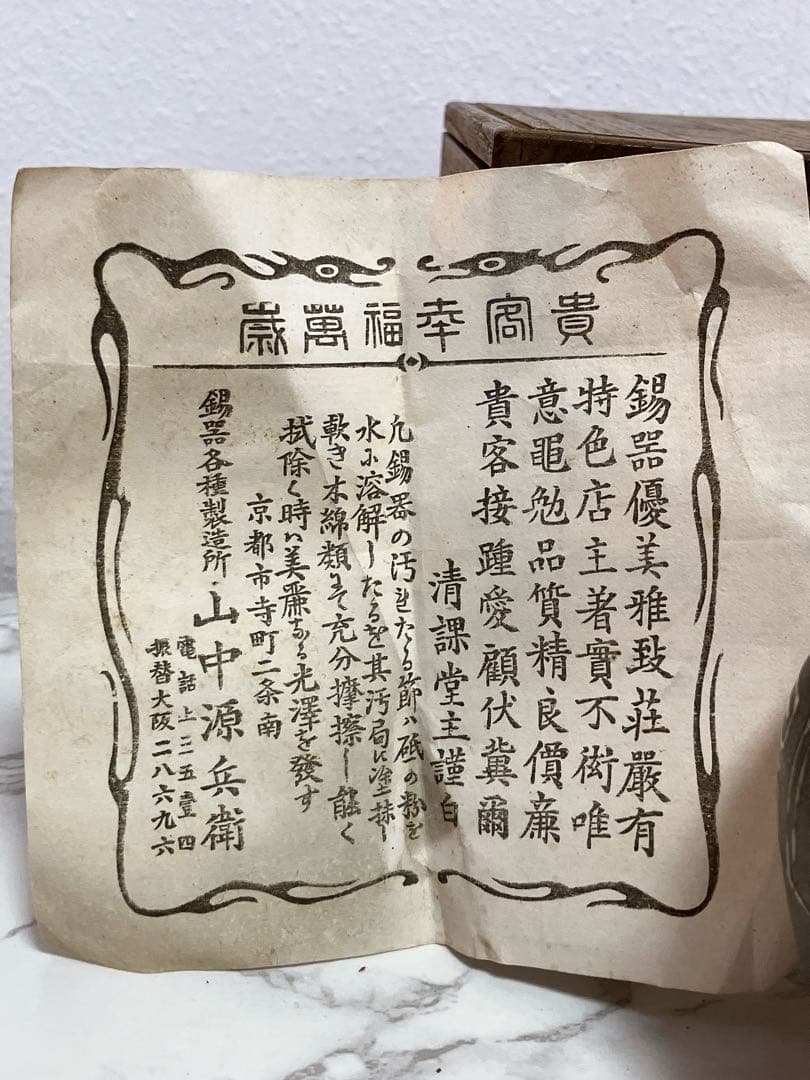 貴客幸福萬歳
錫器優美雅致莊嚴有
特色店主著實不衒唯
意黽勉品質精良價廉
貴客接踵愛顧伏冀爾
清課堂主謹白
凡錫器の汚れたる節ハ砥の粉を
水に溶解したるを其汚局に塗抹し
軟き木綿類にて充分摩擦し能く
拭除く時ハ美麗なる光澤を發す
京都市寺町二条南
錫器各種製造所 山中源兵衛
電話上三五壹四
振替大阪二八六九六